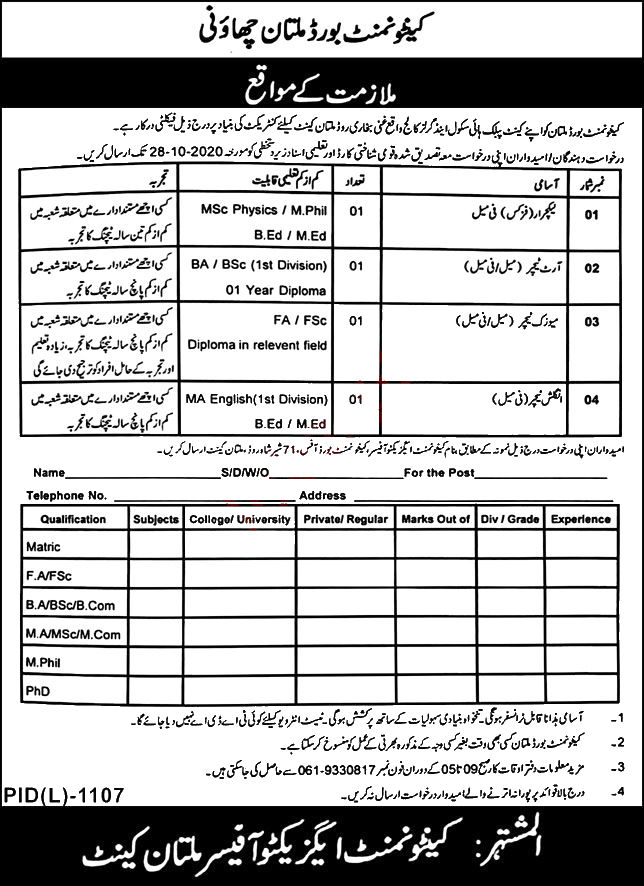 کینٹونمنٹ بورڈ ملتان چھاؤنی
ملازمت کے مواقع
کینٹونمنٹ بورڈ ملتان کو اپنے کینٹ پبلک ہائی سکول اینڈ گرلز کالج واقع غنی بخاری روڈ ملتان کینٹ کیلئے کنٹریکٹ کی بنیاد پر درج ذیل فیکلٹی درکار ہے۔
درخواست دہندگان/امیدواران اپنی درخواست معہ تصدیق شدہ قومی شناختی کارڈ اور تعلیمی اسناد زیر دستخطی کو مورخہ 28-10-2020 تک ارسال کریں۔
نمبر شمار آسامی تعداد کم از کم تعلیمی قابلیت تجربہ
01 لیکچرار (فزکس) فی میل 01 MSc Physics / M.Phil کسی اچھے مستند ادارے میں متعلقہ شعبہ میں
B.Ed / M.Ed کم از کم تین سالہ ٹیچنگ کا تجربہ
02 آرٹ ٹیچر (میل/فی میل) 01 BA / BSc (1st Division) کسی اچھے مستند ادارے میں متعلقہ شعبہ میں
01 Year Diploma کم از کم پانچ سالہ ٹیچنگ کا تجربہ
03 میوزک ٹیچر (میل/فی میل) 01 FA / FSc کسی اچھے مستند ادارے میں متعلقہ شعبہ میں
Diploma in relevent field کم از کم پانچ سالہ ٹیچنگ کا تجربہ، زیادہ تعلیم
اور تجربہ کے حامل افراد کو ترجیح دی جائے گی
04 انگلش ٹیچر (فی میل) 01 MA English(1st Division) کسی اچھے مستند ادارے میں متعلقہ شعبہ میں
B.Ed / M.Ed کم از کم پانچ سالہ ٹیچنگ کا تجربہ
امیدواران اپنی درخواست درج ذیل نمونہ کے مطابق بنام کینٹونمنٹ ایگزیکٹو آفیسر، کینٹونمنٹ بورڈ آفس، 71 شیر شاہ روڈ، ملتان کینٹ ارسال کریں۔
Name S/D/W/O For the Post
Telephone No. Address
Qualification Subjects College/ University Private/ Regular Marks Out of Div / Grade Experience
Matric
F.A/FSc
B.A/BSc/B.Com
M.A/MSc/M.Com
M.Phil
PhD
1۔ آسامی ہذا ناقابل ٹرانسفر ہوگی۔ تنخواہ بنیادی سہولیات کے ساتھ پرکشش ہوگی۔ ٹیسٹ انٹرویو کیلئے کوئی ٹی اے ڈی اے نہیں دیا جائے گا۔
2۔ کینٹونمنٹ بورڈ ملتان کسی بھی وقت بغیر کسی وجہ کے مذکورہ بھرتی کے عمل کو منسوخ کر سکتا ہے۔
3۔ مزید معلومات دفتر اوقات کار صبح 09 تا 05 کے دوران فون نمبر 061-9330817 سے حاصل کی جا سکتی ہیں۔
4۔ درج بالا قوائد پر پورا نہ اترنے والے امیدوار درخواست ارسال نہ کریں۔
PID(L)-1107
المشتہر: کینٹونمنٹ ایگزیکٹو آفیسر ملتان کینٹ